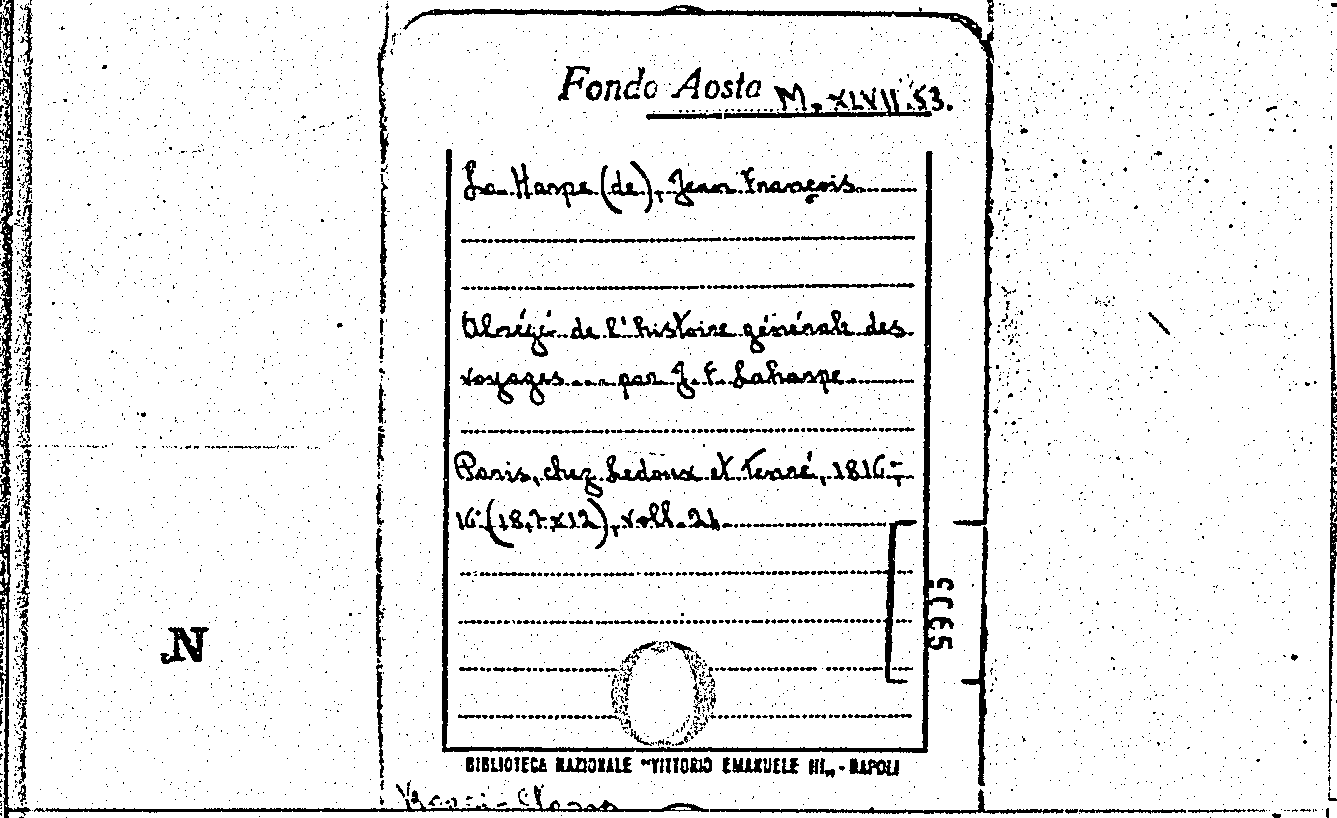 Fondo Aosta M. XLVII.53.
La Harpe (de), Jean François
Abrégé de l'histoire générale des
voyages.... par J. F. Laharpe
Paris, chez Ledoux et Tenré, 1816-
16° (18,7x12), voll. 24
5065
N
BIBLIOTECA NAZIONALE "VITTORIO EMANUELE III„ - NAPOLI